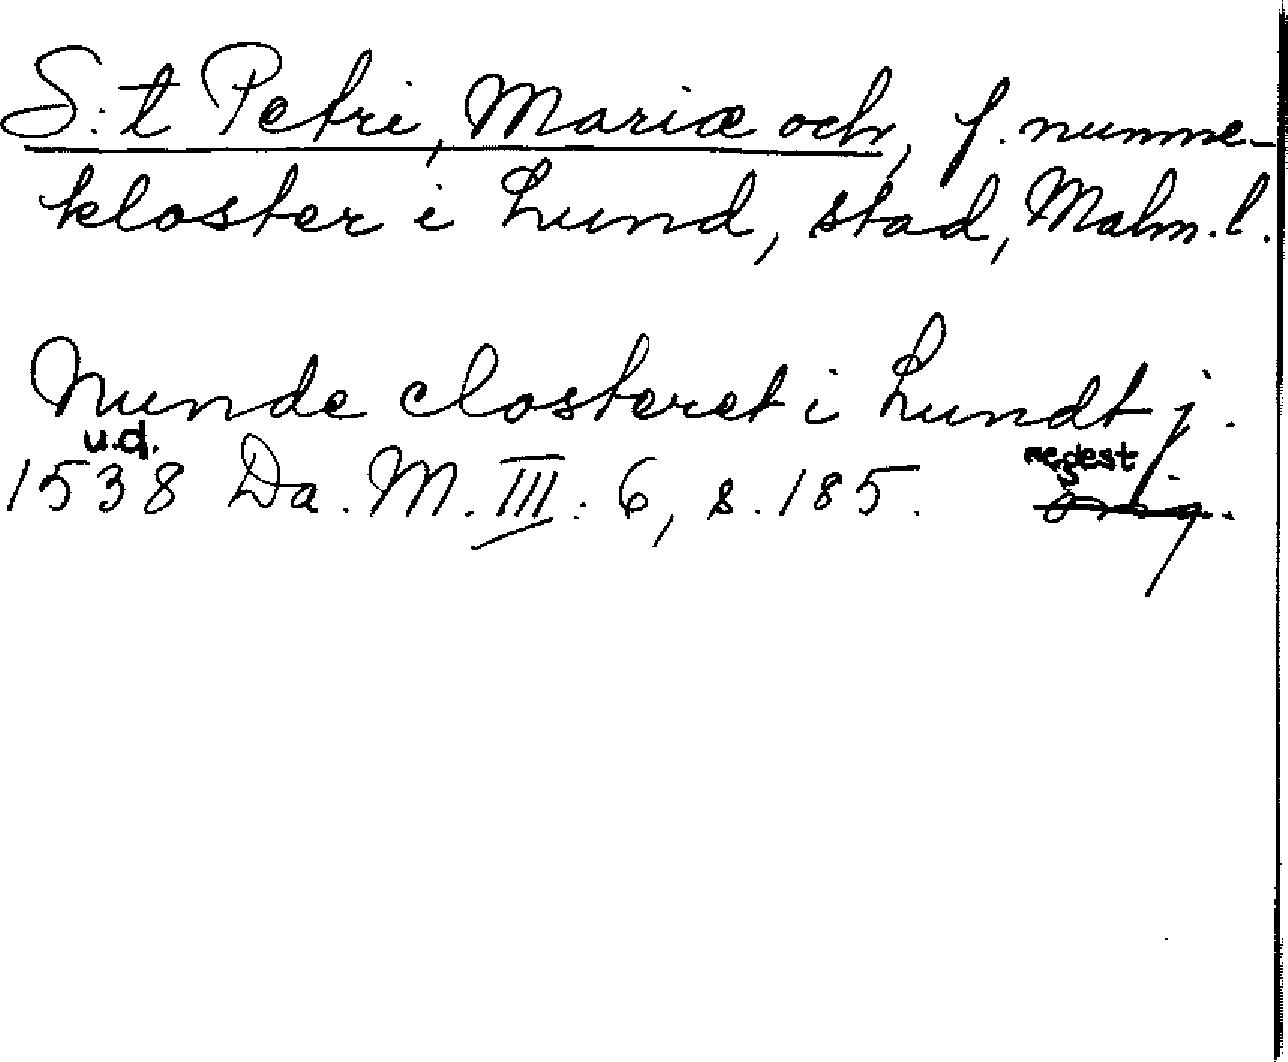 S:t Petri, Mariæ och, f. nunne-
kloster i Lund, stad, Malm. l.
Nunde closteret i Lundt j.
u.d.
1538 Da. M. III: 6, s. 185. regest
orig.